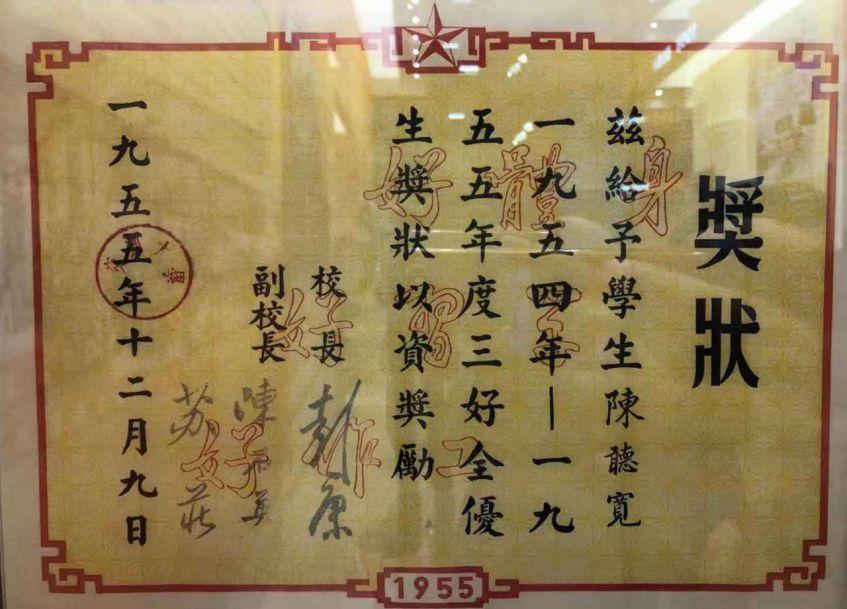 獎狀
兹給予學生陳聽寬
一九五四年—一九
五五年度三好全優
生獎狀以資獎勵
身體好
學習好
工作好
校長 彭康
副校長 陳石英
苏莊
一九五五年十二月九日
1955